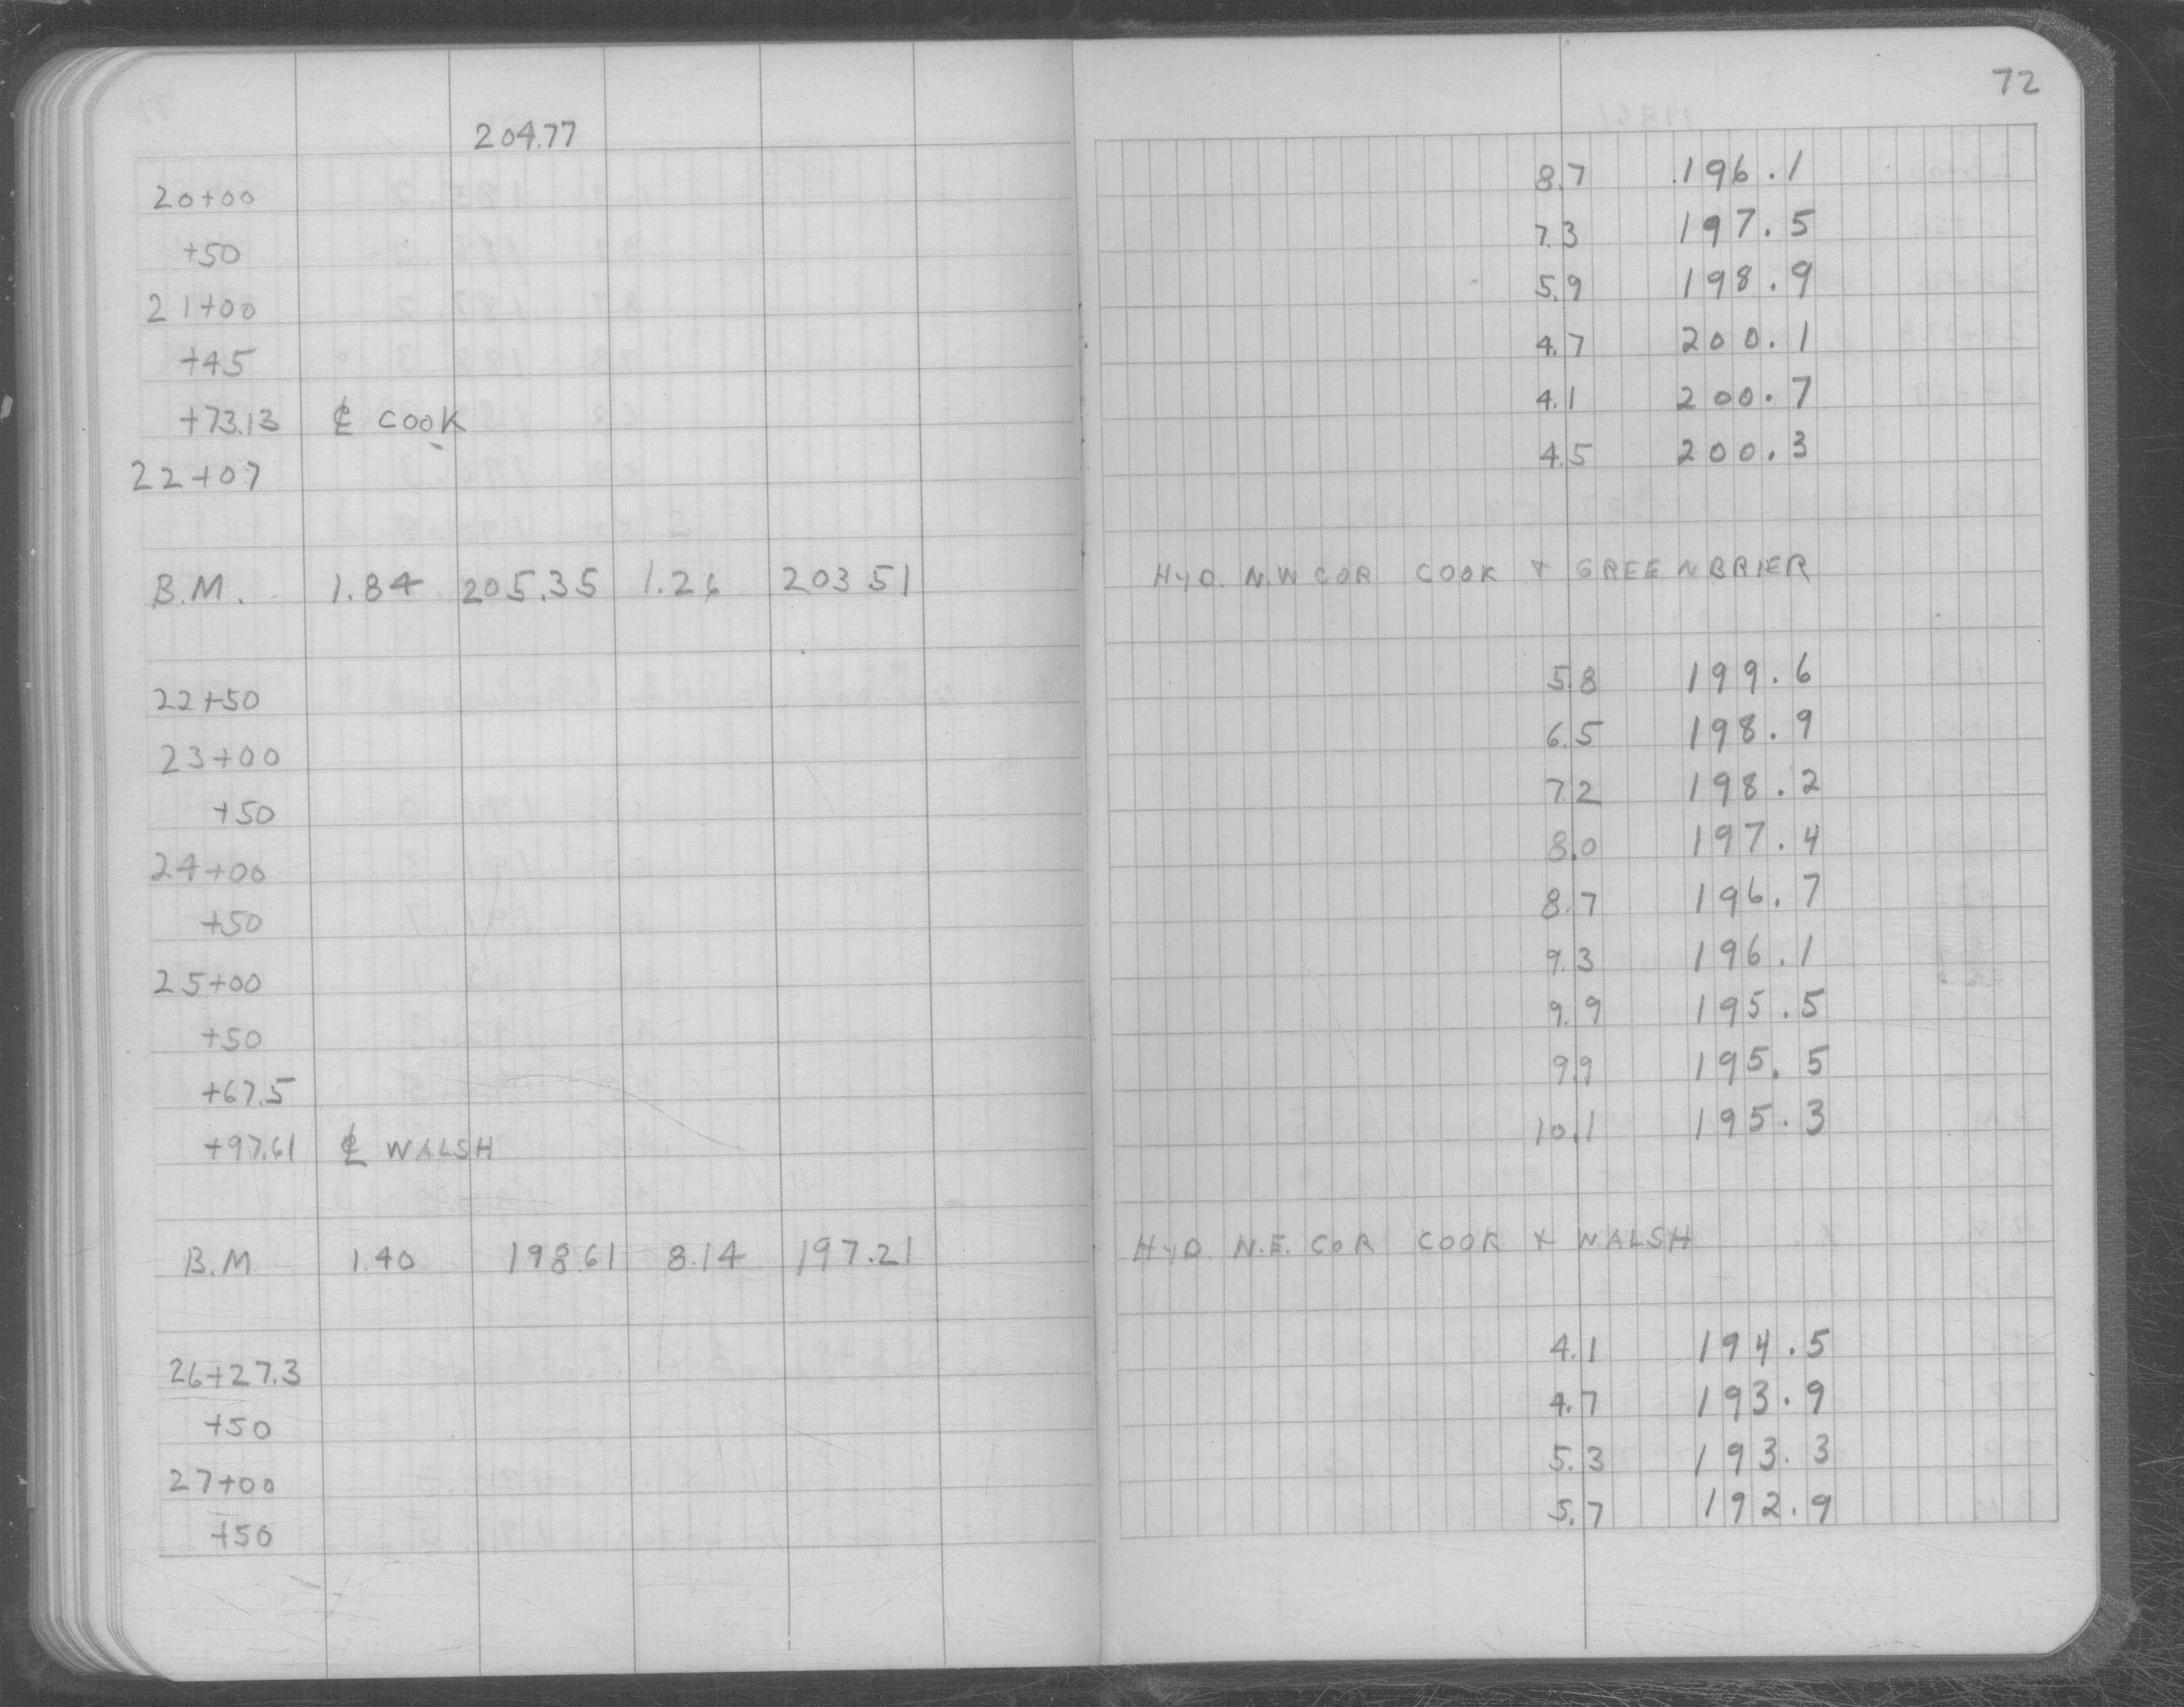 72
204.77
20+00 8.7 196.1
+50 7.3 197.5
21+00 5.9 198.9
+45 4.7 200.1
+73.13 ℄ COOK 4.1 200.7
22+07 4.5 200.3
B.M. 1.84 205.35 1.26 203 51 HYD. N.W COR COOK & GREENBRIER
22+50 5.8 199.6
23+00 6.5 198.9
+50 7.2 198.2
24+00 8.0 197.4
+50 8.7 196.7
25+00 9.3 196.1
+50 9.9 195.5
+67.5 9.9 195.5
+97.61 ℄ WALSH 10.1 195.3
B.M 1.40 198.61 8.14 197.21 HYD. N.E. COR COOK & WALSH
26+27.3 4.1 194.5
+50 4.7 193.9
27+00 5.3 193.3
+50 5.7 192.9